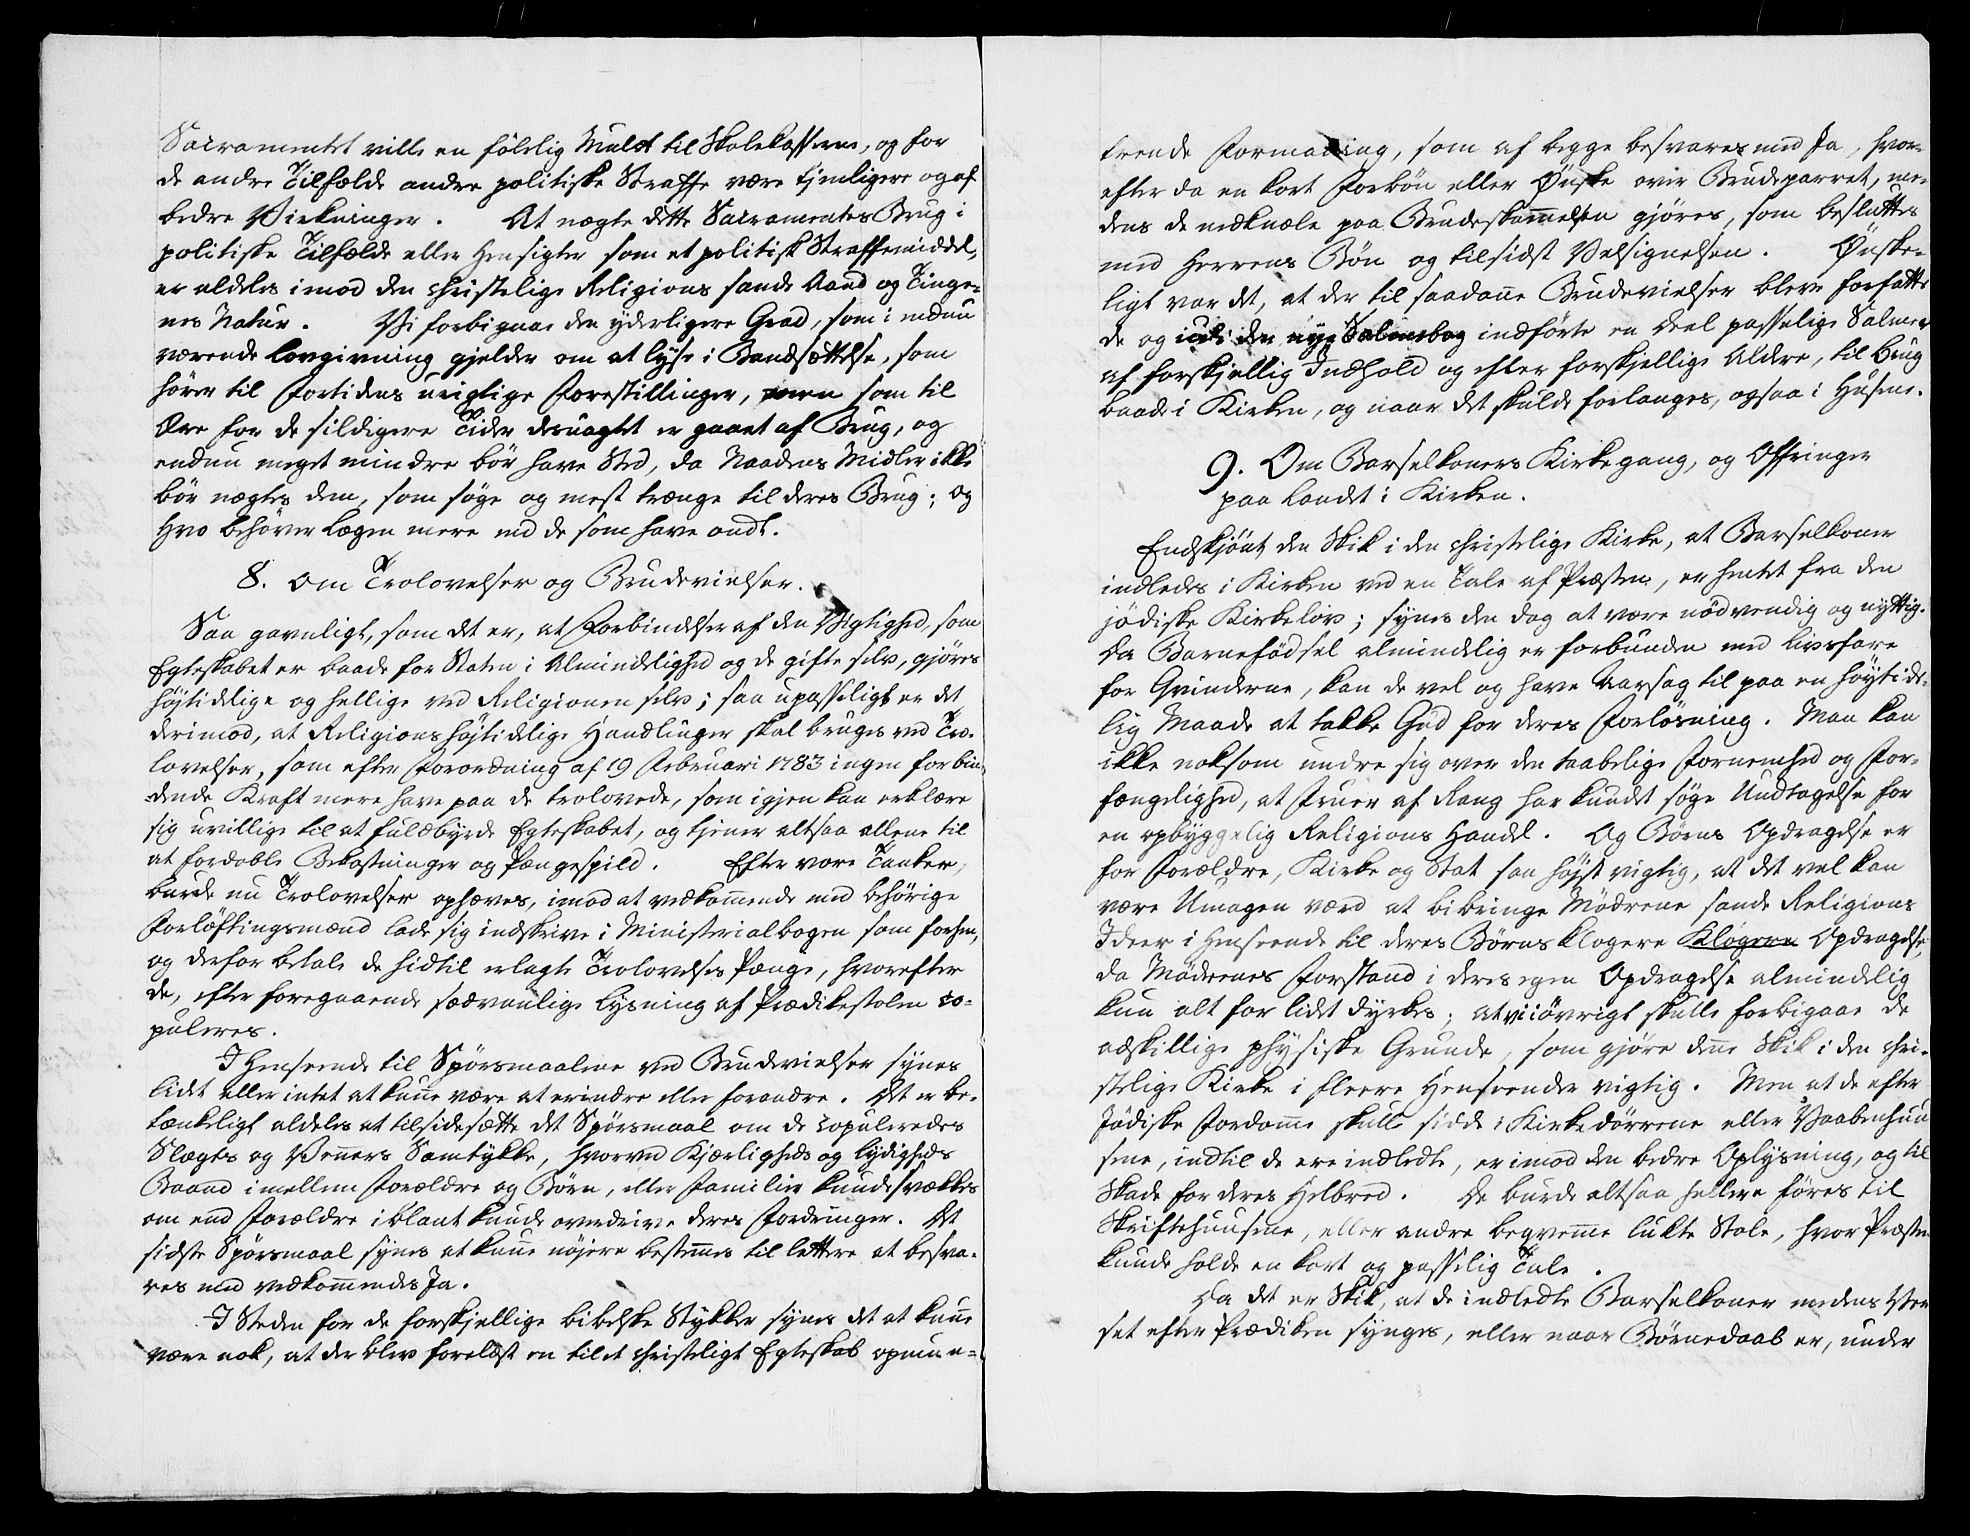 Sacramentet ville en følelig Mulct til Skolekasserne, og for
de andre Tilfælde andre politiske Straffe være tjenligere og af
bedre Virkninger. At nægte dette Sacramentes Brug i
politiske Tilfælde eller Hensigter som et politisk Straffemiddel,
er aldeles imod den christelige Religions sande Aand og Tinge-
nes Natur. Vi forbigaae den yderligere Grad, som i endnu
værende Lovgivning gjelder om at lyse i Bandsættelse, som
hører til Fortidens urigtige Forestillinger, men som til
Ære for de sildigere Tider desuagtet er gaaet af Brug, og
endnu meget mindre bør have Sted, da Naadens Midler ikke
bør nægtes dem, som søge og mest trænge til deres Brug; og
Hvo behøver Lægen mere end de som have ondt.
8. Om Trolovelser og Brudevielser.
Saa gavnligt, som det er, at Forbindelser af den Vigtighed, som
Egteskabet er baade for Staten i Almindelighed og de gifte selv, gjøres
høitidelige og hellige ved Religionen selv; saa upasseligt er det
derimod, at Religions højtidelige Handlinger skal bruges ved Tro-
lovelser, som efter Forordning af 19 Februari 1783 ingen forbin-
dende Kraft mere have paa de trolovede, som igjen kan erklære
sig uvillige til at fuldbyrde Egteskabet, og tjener altsaa allene til
at fordoble Bekostninger og Pængespild. Efter vore Tanker,
burde nu Trolovelser ophæves, imod at vedkom̅ende med behørige
Forløftingsmænd lade sig indskrive i Ministerialbogen som forhen,
og derfor betale de hidtil erlagte Trolovelses Pænge, hvorefter
de, efter foregaaende sædvanlige Lysning af Prædikestolen co-
puleres.
I Henseende til Spørsmaalene ved Brudevielser synes
lidt eller intet at kun̅e være at erindre eller forandre. Det er be-
tænkeligt aldeles at tilsidesætte det Spørsmaal om de Copuleredes
Slægts og Ven̅ers Samtykke, hvorved Kjærligheds og Lydigheds
Baand imellem Forældre og Børn, eller Familier kunde svækkes
om end Forældre iblant kunde overdrive deres Fordringer. Det
sidste Spørsmaal synes at kun̅e nøjere bestem̅es til lettere at besva-
res med vedkom̅endes Ja.
I Steden for de forskjellige bibelske Stykker synes det at kun̅e
være nok, at der blev forelæst en til et christeligt Egteskab opmun-
trende Formaning, som af begge besvares med Ja, hvor-
efter da en kort Forbøn eller Ønske over Brudeparret, me-
dens de nedknæle paa Brudeskam̅elen gjøres, som besluttes
med Herrens Bøn og tilsidst Velsignelsen. Ønske-
ligt var det, at der til saadan̅e Brudevielser bleve forfatte-
de og udi den nye Psalmebog indførte en Deel passelige Salmer
af forskjellig Indhold og efter forskjellige Aldere, til Brug
baade i Kirken, og naar det skulde forlanges, ogsaa i Husene.
9. Om Barselkoners Kirkegang, og Offringer
paa Landet i Kirken.
Endskjønt den Skik i den christelige Kirke, at Barselkoner
indledes i Kirken ved en Tale af Præsten, er hentet fra den
jødiske Kirkelov; synes den dog at være nødvendig og nyttig.
Da Barnefødsel almindelig er forbunden med Livsfare
for Qvinderne, kan de vel og have Aarsag til paa en høytide-
lig Maade at takke Gud for deres Forløsning. Man kan
ikke noksom undre sig over den taabelige Fornemhed og For-
fængelighed, at Fruer af Rang har kundet søge Undtagelse for
en opbyggelig Religions Handel. Og Børns Opdragelse er
for Forældre, Kirke og Stat saa højst vigtig, at det vel kan
være Umagen værd at bibringe Mødrene sande Religions
Ideer i Henseende til deres Børns klogere Klogere Opdragelse,
da Mødrenes Forstand i deres egen Opdragelse almindelig
kun alt for lidet dyrkes; at vi iøvrigt skulle forbigaae de
adskillige physiske Grunde, som gjøre den̅e Skik i den chri-
stelige Kirke i fleere Henseender vigtig. Men at de efter
Jødiske Fordom̅e skulle sidde i Kirkedørrene eller Vaabenhuu-
sene, indtil de ere indledte, er imod den bedre Oplysning, og til
Skade for deres Helbred. De burde altsaa hellere føres til
Skriftehuusene, eller andre beqvem̅e lukte Stole, hvor Præsten
kunde holde en kort og passelig Tale.
Da det er Skik, at de indledte Barselkoner medens Ver-
set efter Prædiken synges, eller naar Børnedaab er, under